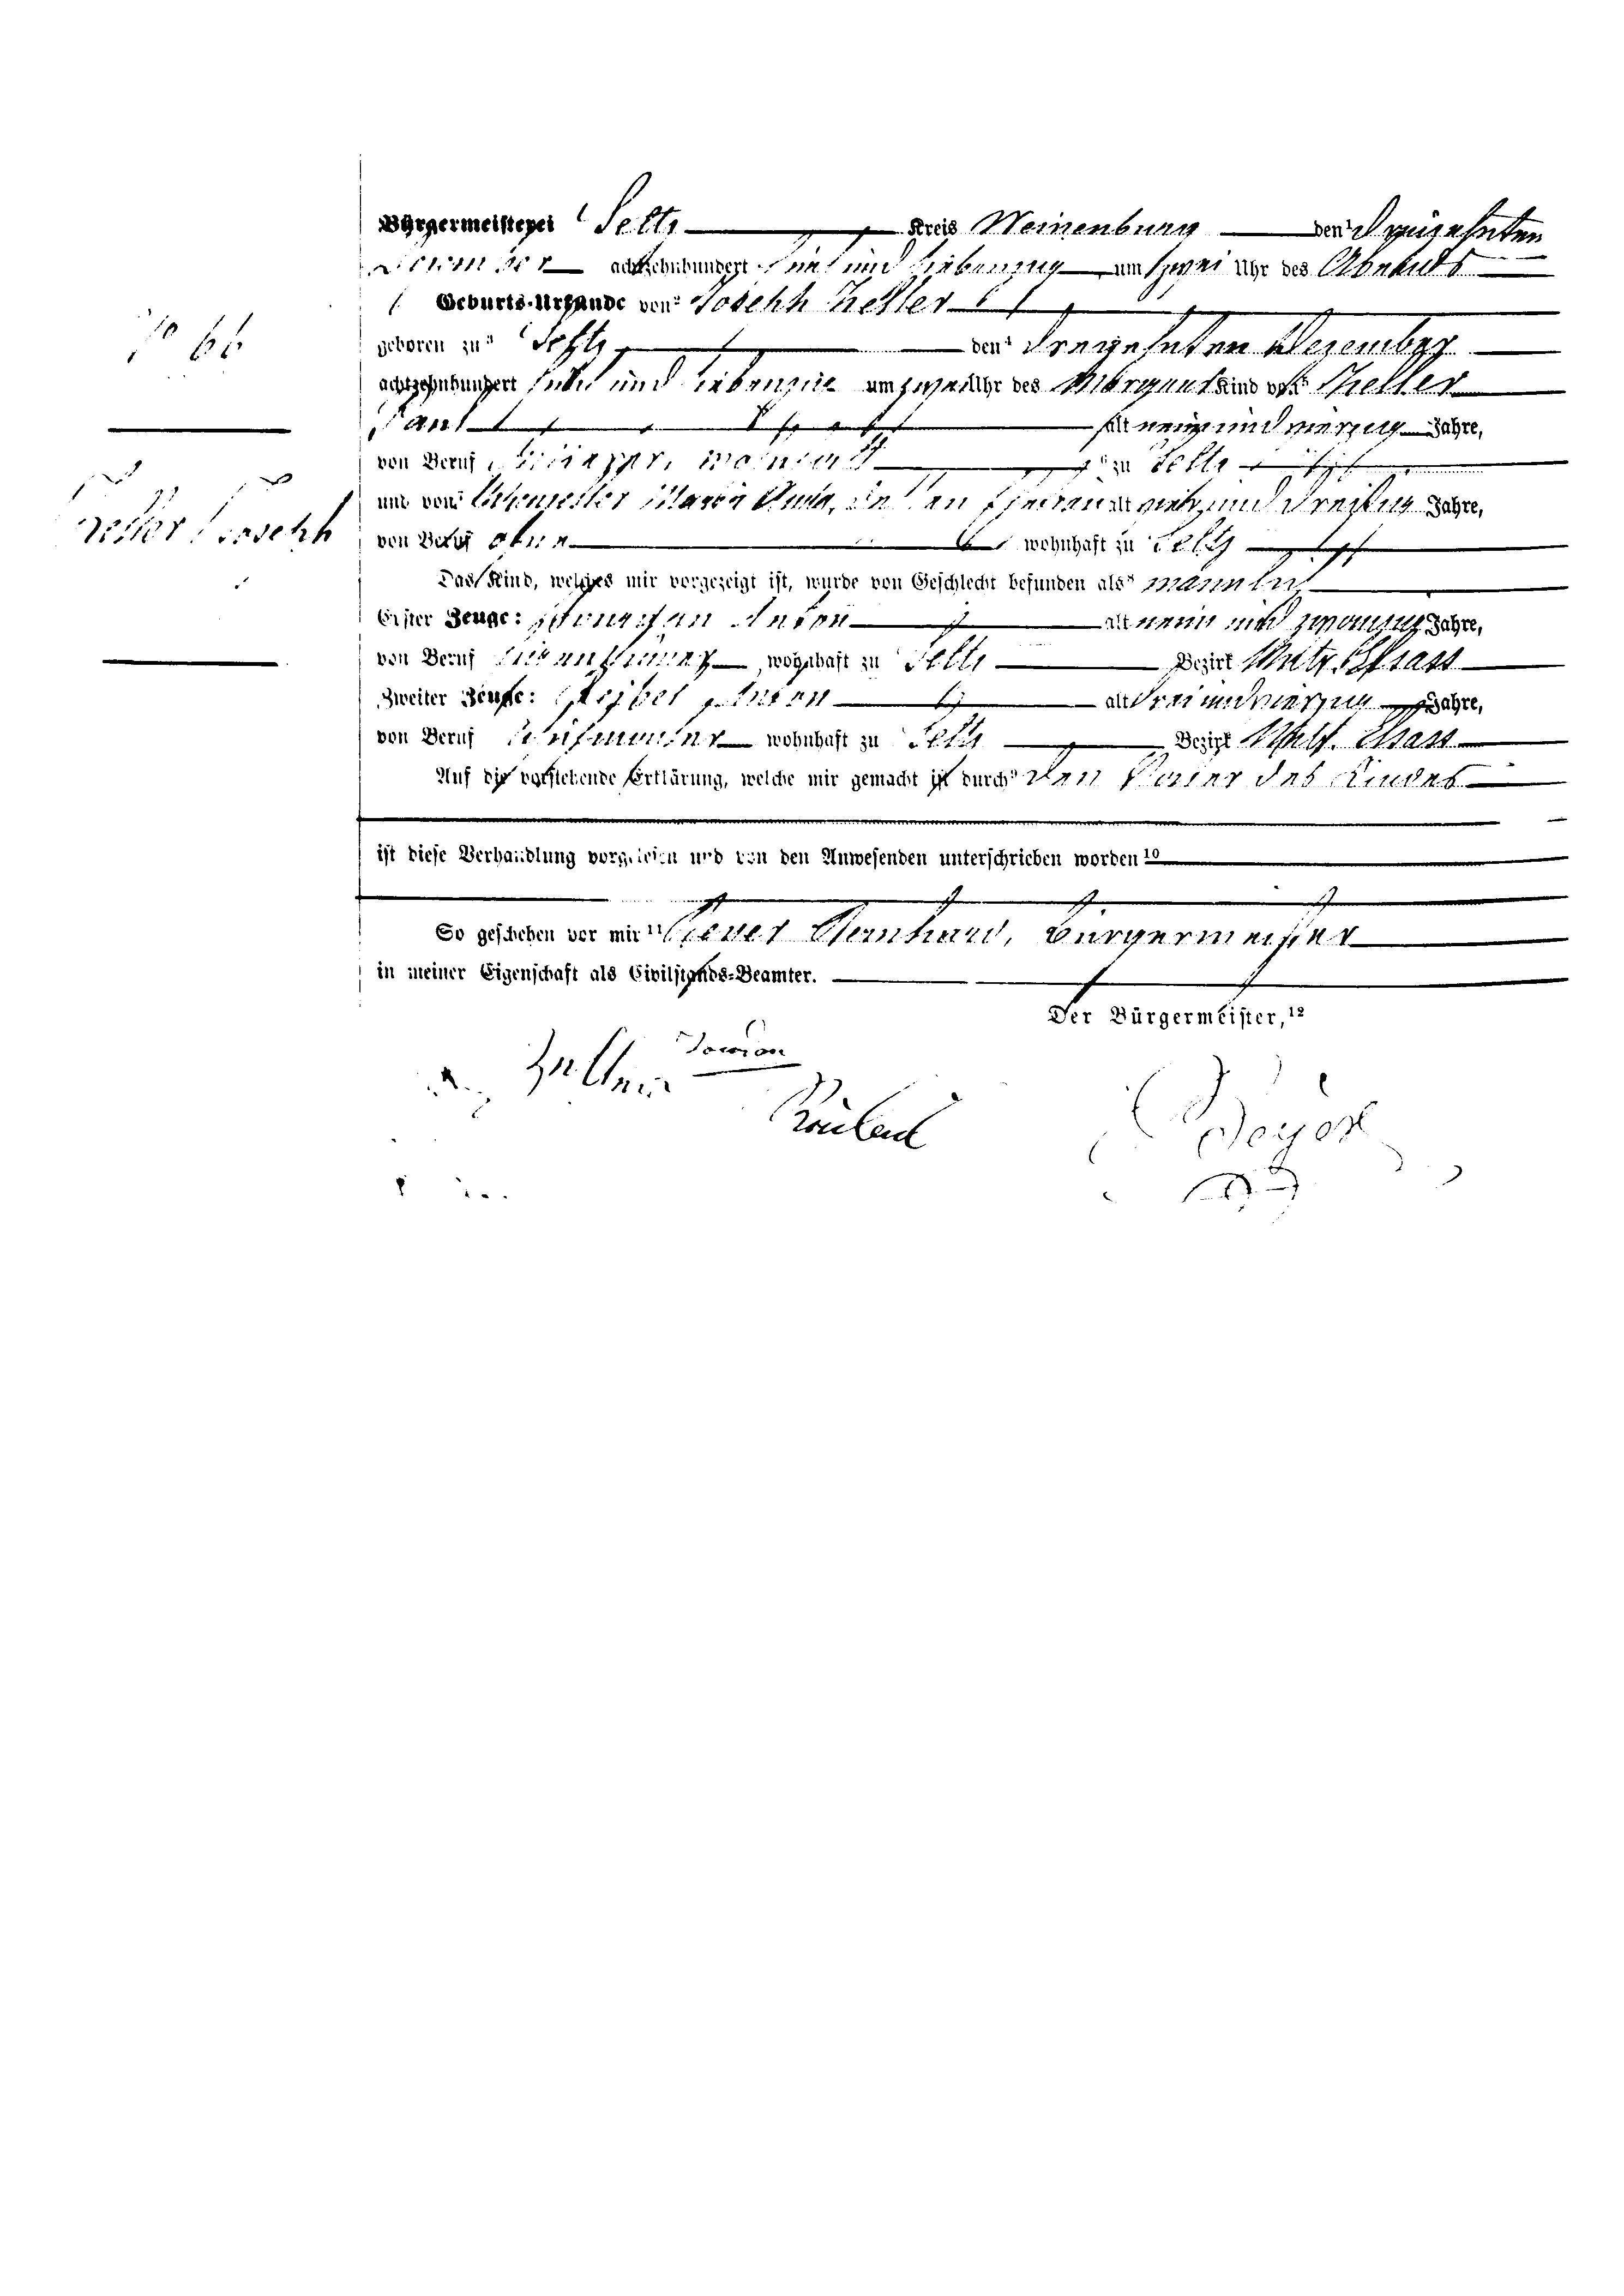 Bürgermeisterei Seltz Kreis Weissenburg den Dreizehnten
Dezember achtzehnhundert fünf und siebenzig um zwei Uhr des Abends
Geburts-Urkunde von Joseph Zeller
geboren zu Seltz den Dreizehnten Dezember
achtzehnhundert fünf und siebenzig um zwei Uhr des Morgens Kind von Zeller
alt neun und vierzig Jahre,
von Beruf wohnhaft zu Seltz
und von Maria Anna, Ehefrau alt vier und dreißig Jahre,
von Beruf ohne wohnhaft zu Seltz
Das Kind, welches mir vorgezeigt ist, wurde von Geschlecht befunden als männlich
Erster Zeuge: Anton alt neun und zwanzig Jahre,
von Beruf wohnhaft zu Seltz Bezirk Unter Elsass
Zweiter Zeuge: Anton alt drei und vierzig Jahre,
von Beruf wohnhaft zu Seltz Bezirk Unter Elsass
Auf die vorstehende Erklärung, welche mir gemacht ist durch den Vater des Kindes
ist diese Verhandlung vorgelesen und von den Anwesenden unterschrieben worden 10
So geschehen vor mir 11 Beyer Bernhard, Bürgermeister
in meiner Eigenschaft als Civilstands-Beamter.
Der Bürgermeister, 12
Zeller
Beyer
No 66
Zeller Joseph